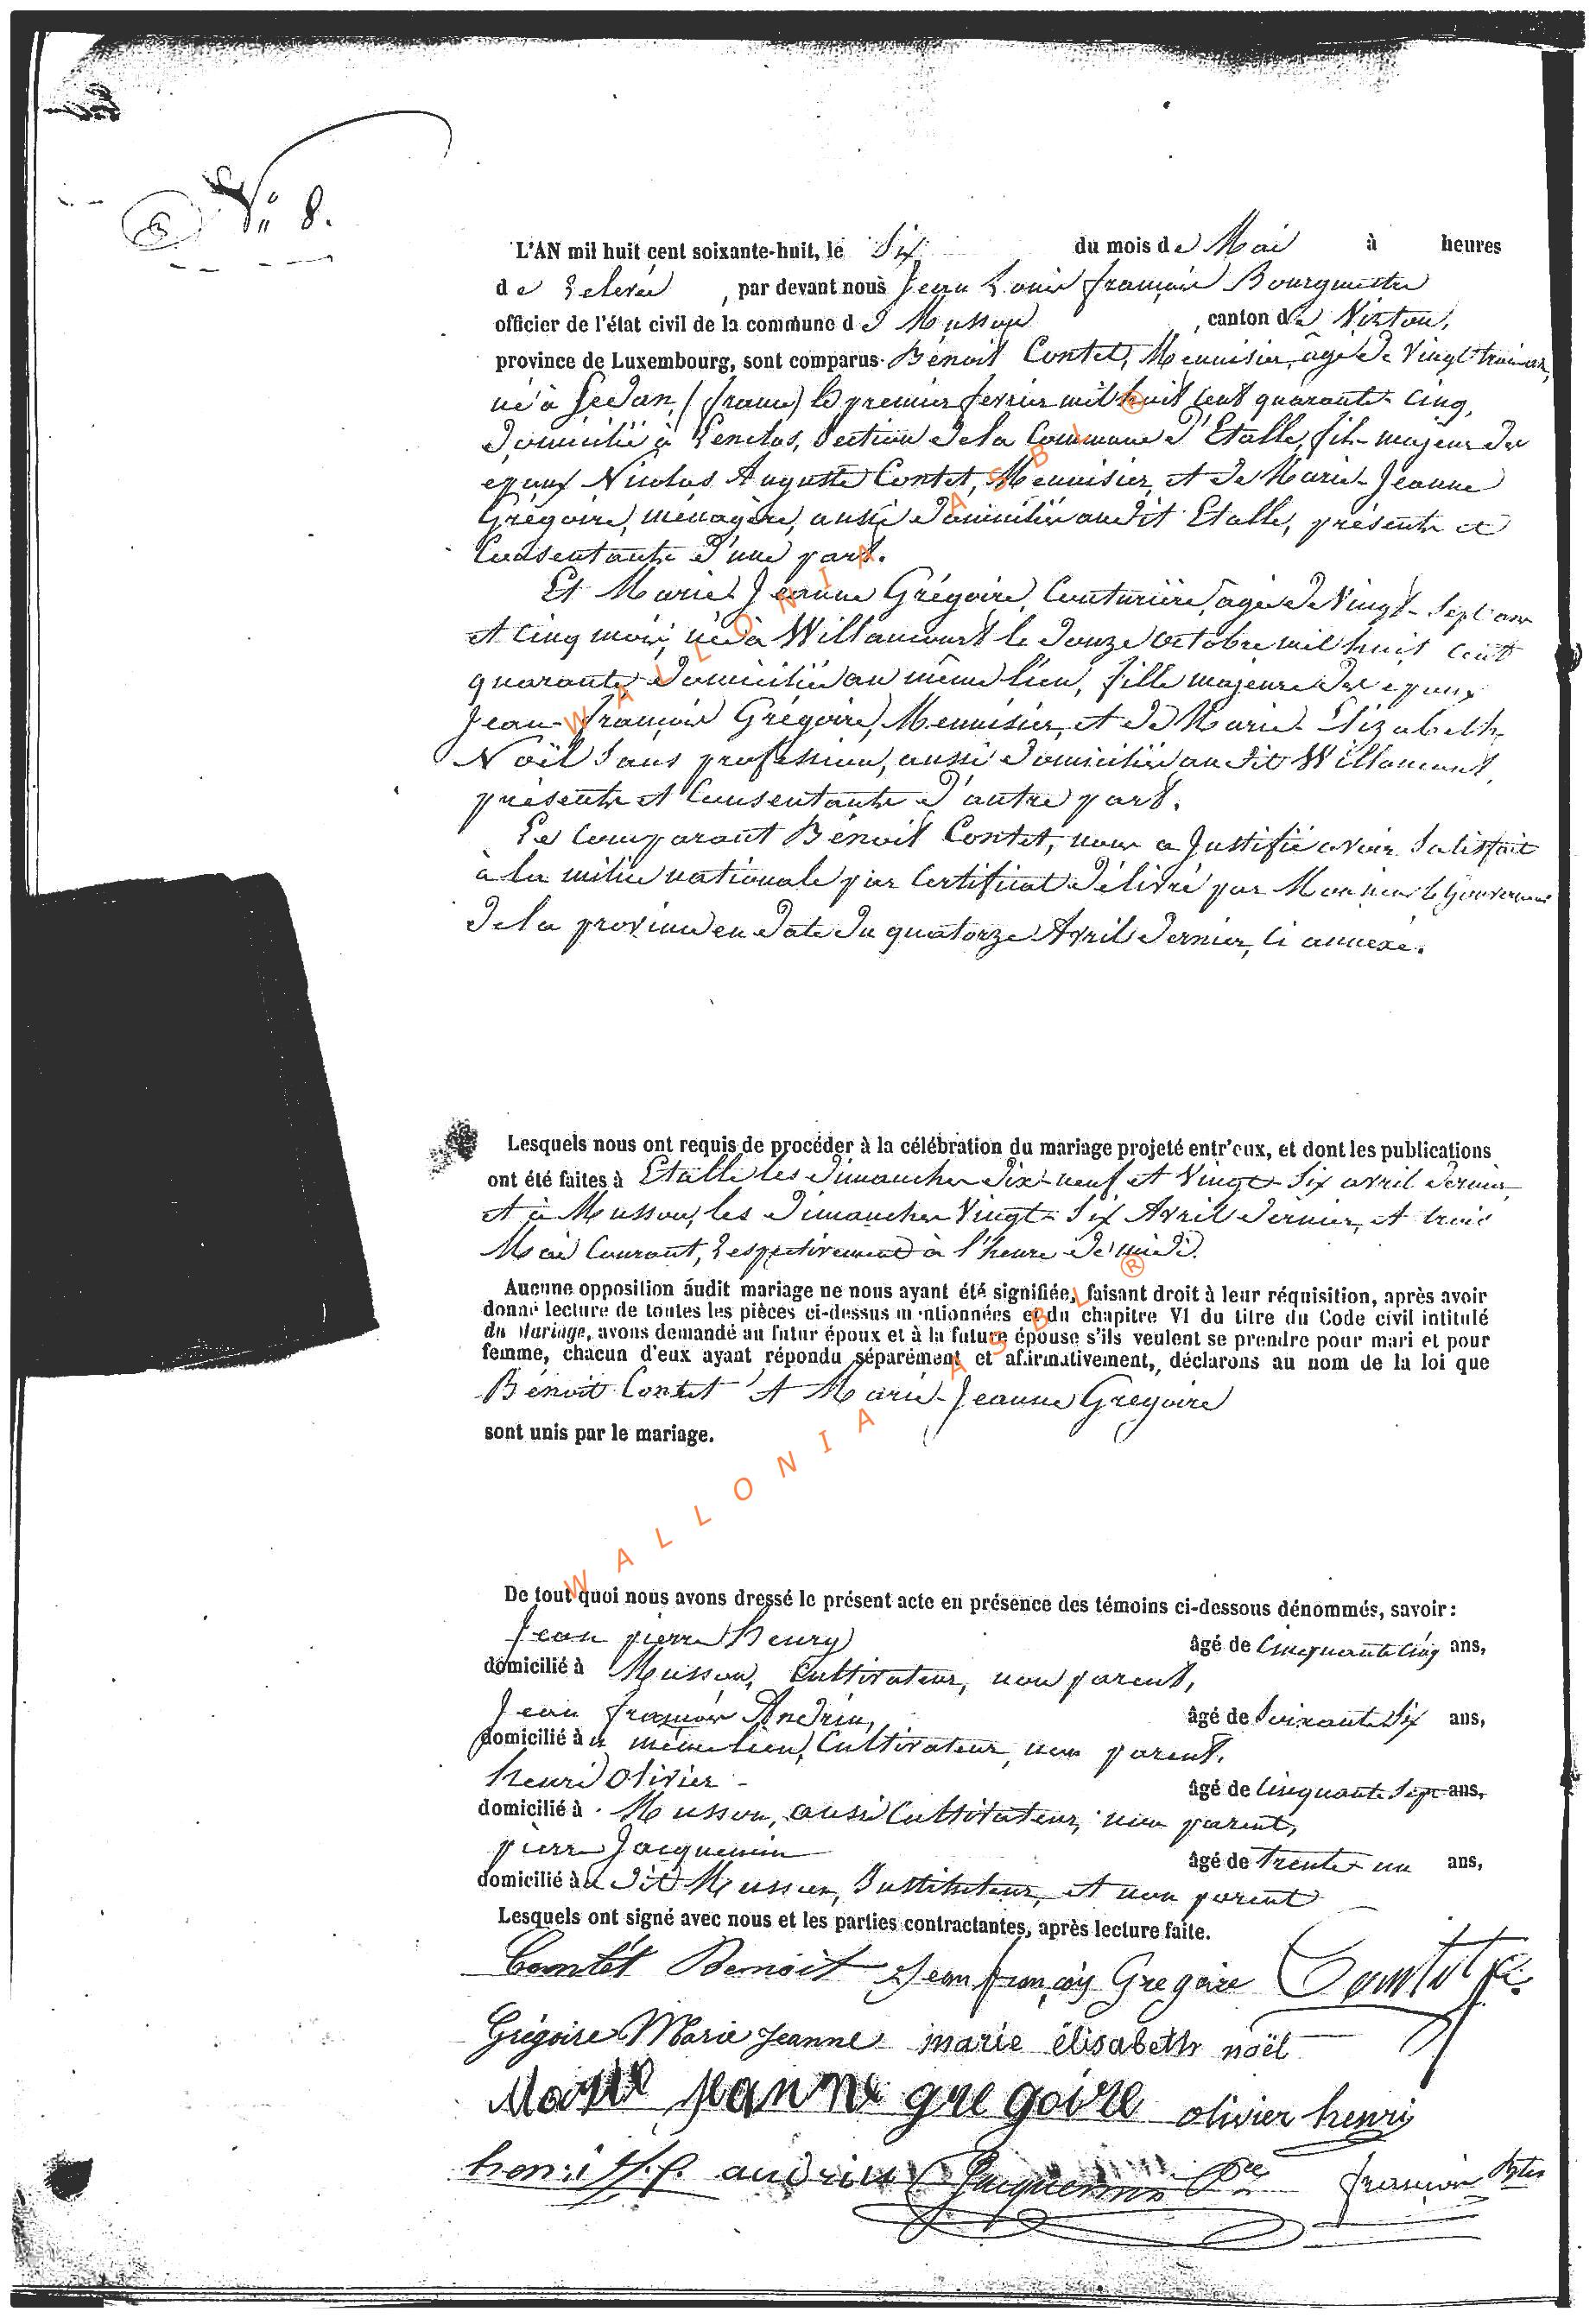 N° 8.
L'AN mil huit cent soixante-huit, le Six du mois de Mai à heures
de relevée, par devant nous Jean Louis françois Bourgmestre
officier de l'état civil de la commune de Musson, canton de Virton,
province de Luxembourg, sont comparus Bénoit Contet, Menuisier, âgé de Vingt trois ans,
né à Sedan, (france) le premier fevrier mil huit cent quarante-cinq,
domicilié à Lenclos, Section de la Commune d'Etalle, fils majeur des
epoux Nicolas Auguste Contet, Menuisier, et de Marie-Jeanne
Grégoire, ménagère, aussi domiciliés audit Etalle, présents et
Consentants d'une part.
Et Marie-Jeanne Grégoire, Couturière, âgée de Vingt-Sept ans
et cinq mois, née à Willancourt le douze octobre mil huit cent
quarante, domiciliée au même lieu, fille majeure des epoux
Jean-françois Grégoire, Menuisier, et de Marie-Elizabeth
Noël sans profession, aussi domiciliés au dit Willancourt,
présents et Consentants d'autre part.
Le comparant Bénoit Contet, nous a justifié avoir Satisfait
à la milice nationale par Certificat délivré par Monsieur le Gouverneur
de la province en date du quatorze Avril dernier, ci annexé.
Lesquels nous ont requis de procéder à la célébration du mariage projeté entr'eux, et dont les publications
ont été faites à Etalle les dimanches dix-neuf et Vingt-Six avril dernier,
et à Musson, les dimanches Vingt-Six Avril dernier, et trois
Mai Courant, respectivement à l'heure de midi.
Aucune opposition audit mariage ne nous ayant été signifiée, faisant droit à leur réquisition, après avoir
donné lecture de toutes les pièces ci-dessus mentionnées et du chapitre VI du titre du Code civil intitulé
du Mariage, avons demandé au futur époux et à la future épouse s'ils veulent se prendre pour mari et pour
femme, chacun d'eux ayant répondu séparément et affirmativement, déclarons au nom de la loi que
Bénoit Contet et Marie-Jeanne Gregoire
sont unis par le mariage.
De tout quoi nous avons dressé le présent acte en présence des témoins ci-dessous dénommés, savoir:
Jean pierre henry âgé de Cinquante cinq ans,
domicilié à Musson, Cultivateur, non parent,
Jean françois Andrin, âgé de Soixante Six ans,
domicilié à u même lieu, Cultivateur, non parent.
henri Olivier âgé de Cinquante Sept ans,
domicilié à Musson, aussi Cultivateur, non parent,
pierre Jacquemin âgé de trente-un ans,
domicilié à u dit Musson, Instituteur, et non parent
Lesquels ont signé avec nous et les parties contractantes, après lecture faite.
Contét Benoit Jean françois Gregoire Contet
Grégoire Marie Jeanne marie élisabeth noël
Marie jeanne gregoire olivier henri
henri J.p. andrin Jacquemin Pre françois
WALLONIA ASBL ®
WALLONIA ASBL ®